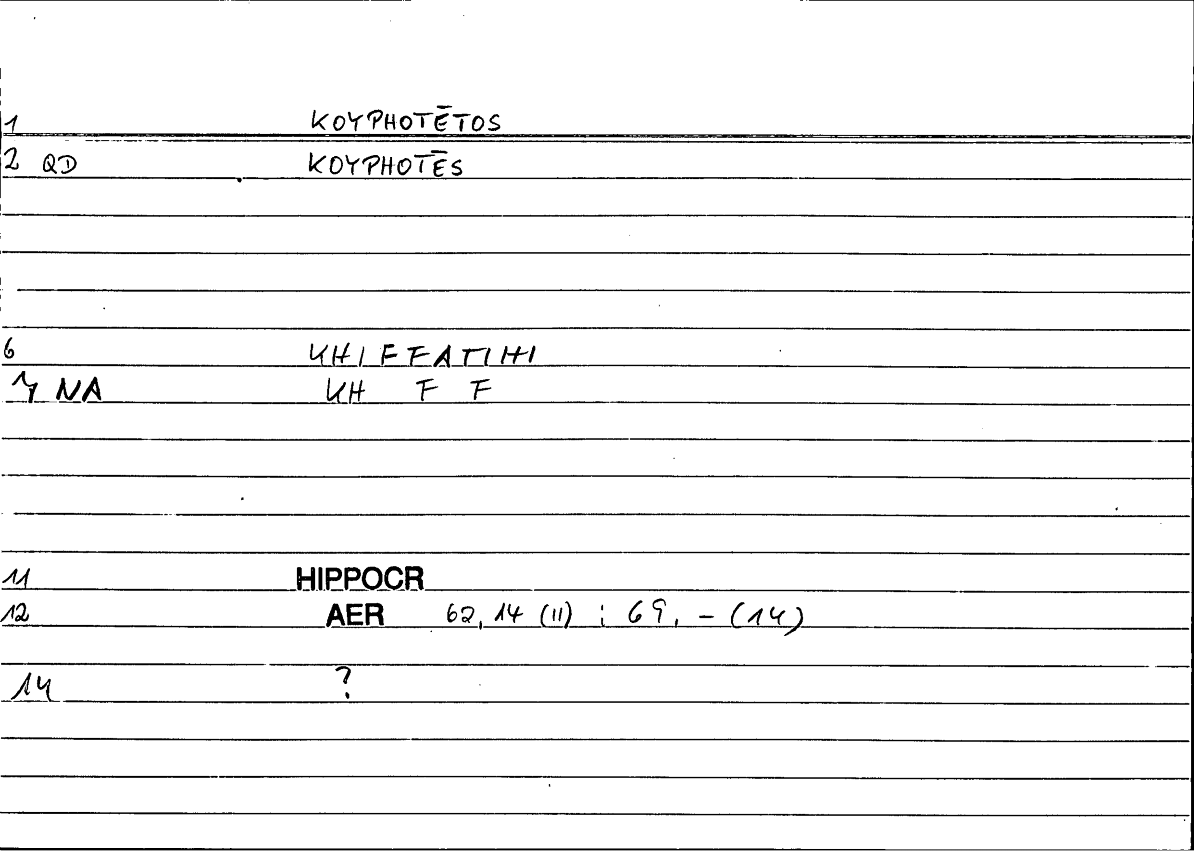 1 KOYPHOTĒTOS
2 QD KOYPHOTĒS
6 KHIFFATIHI
7 NA KH F F
11 HIPPOCR
12 AER 62,14 (11) ; 69, - (14)
14 ?